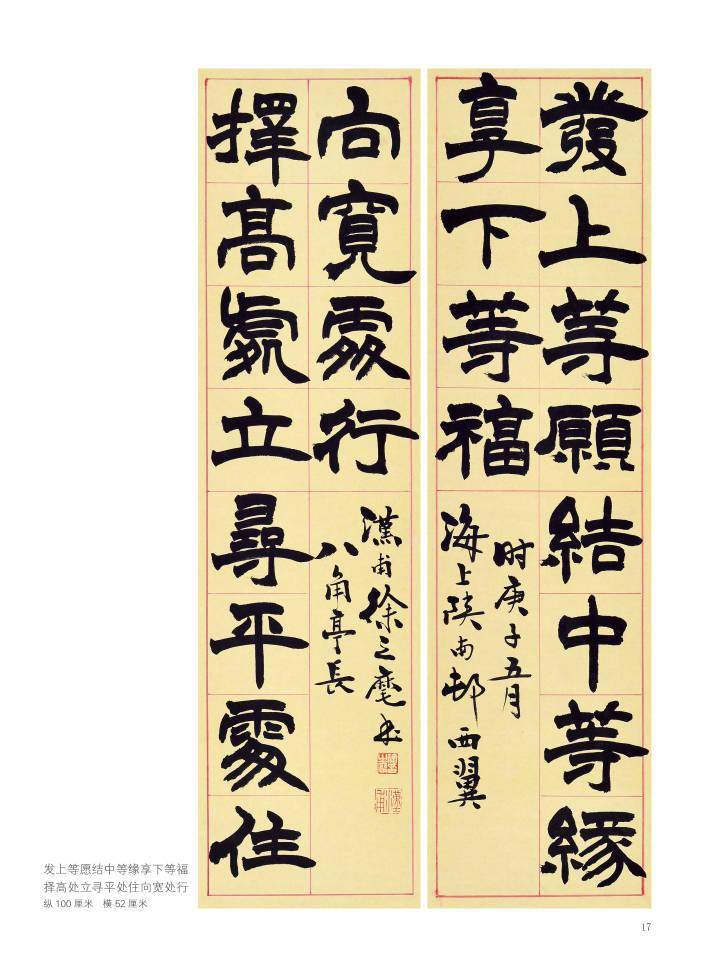 發上等願結中等緣
享下等福
时庚子五月
海上陕南邨西翼
擇高處立尋平處住
向寬處行
漢甫徐之麾书
八角亭長
发上等愿结中等缘享下等福
择高处立寻平处住向宽处行
纵 100 厘米 横 52 厘米
17